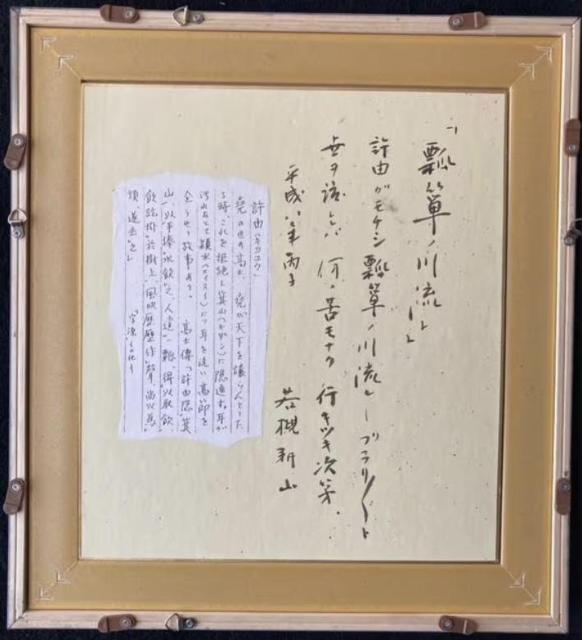 「瓢箪ノ川流レ」
許由ガモケシ瓢箪ノ川流レーブラリ〱ト
世ヲ渡レバ何ノ苦モナク行キツキ次第.
平成八年丙子
若槻新山
許由(キヨユウ)
堯の世の高士、堯が天下を譲らんとした
る時、これを拒絶し箕山(キザン)に隠遁す。耳が
汚れたとて潁水(エイスイ)にて耳を洗い高節を
全うせり故事あり。 高士傳「許由隠箕
山、以手捧水飲之、人遺一瓢、得以取飲、
飲訖掛於樹上、風吹歴歴作聲、尚以為
煩 遂去之」